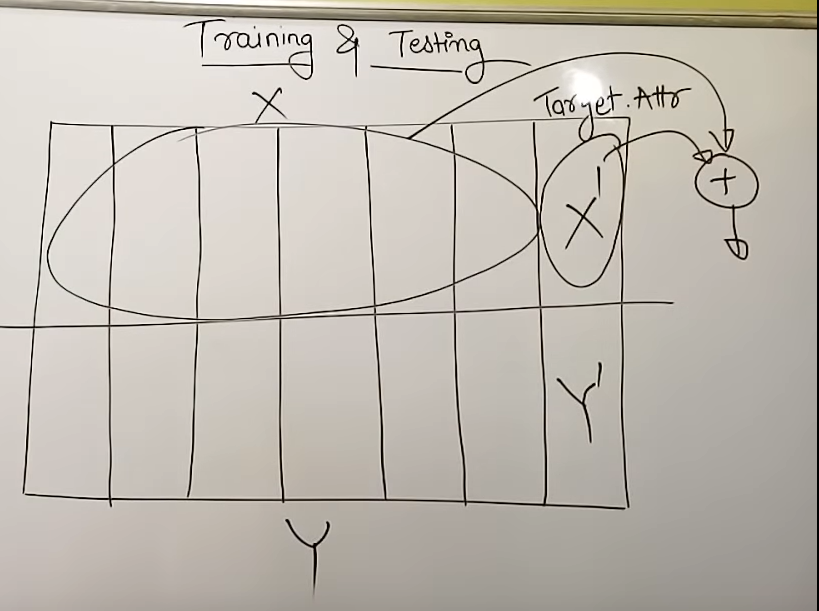 Training & Testing
X
Target. Attr
X'
+
Y'
Y